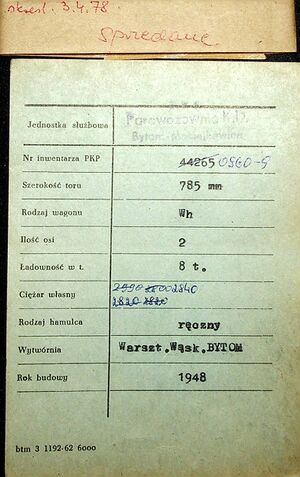 skreśl. 3.4.78.
sprzedane
Jednostka służbowa Parowozownia K.D.
Bytom-Rozbark
Nr inwentarza PKP 44265 0560-9
Szerokość toru 785 mm
Rodzaj wagonu Wh
Ilość osi 2
Ładowność w t. 8 t.
Ciężar własny 2840
Rodzaj hamulca ręczny
Wytwórnia Warszt.Wąsk.BYTOM
Rok budowy 1948
btm 3 1192-62 6000